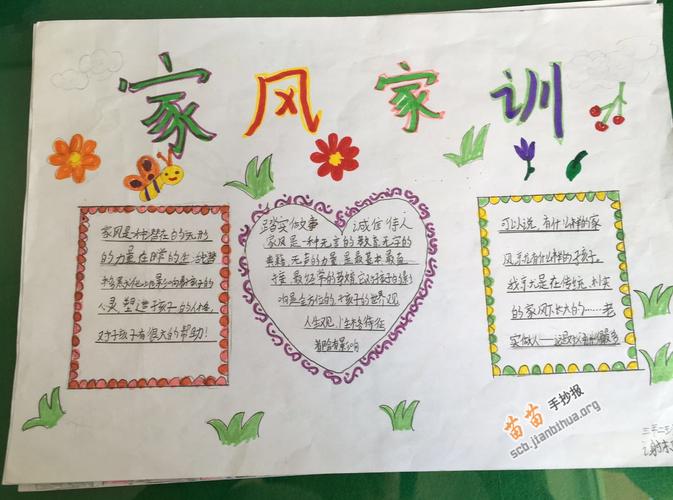 家风家训
家风是一种潜在的无形
的力量,在日常的生
孩子的
心灵,塑造孩子的人格,
对于孩子有很大的帮助!
踏实做事 诚信待人
家风是一种无言的教育、无字的
典籍、无声的力量,是最基本、最直
接、最经常的教育,它对孩子的影
响是全方位的,孩子的世界观、
人生观、性格特征
可以说,有什么样的家
风,就有什么样的孩子。
我就是在传统、朴实
的家风长大的……老
实做人——
苗苗手抄报
scb.jianbihua.org